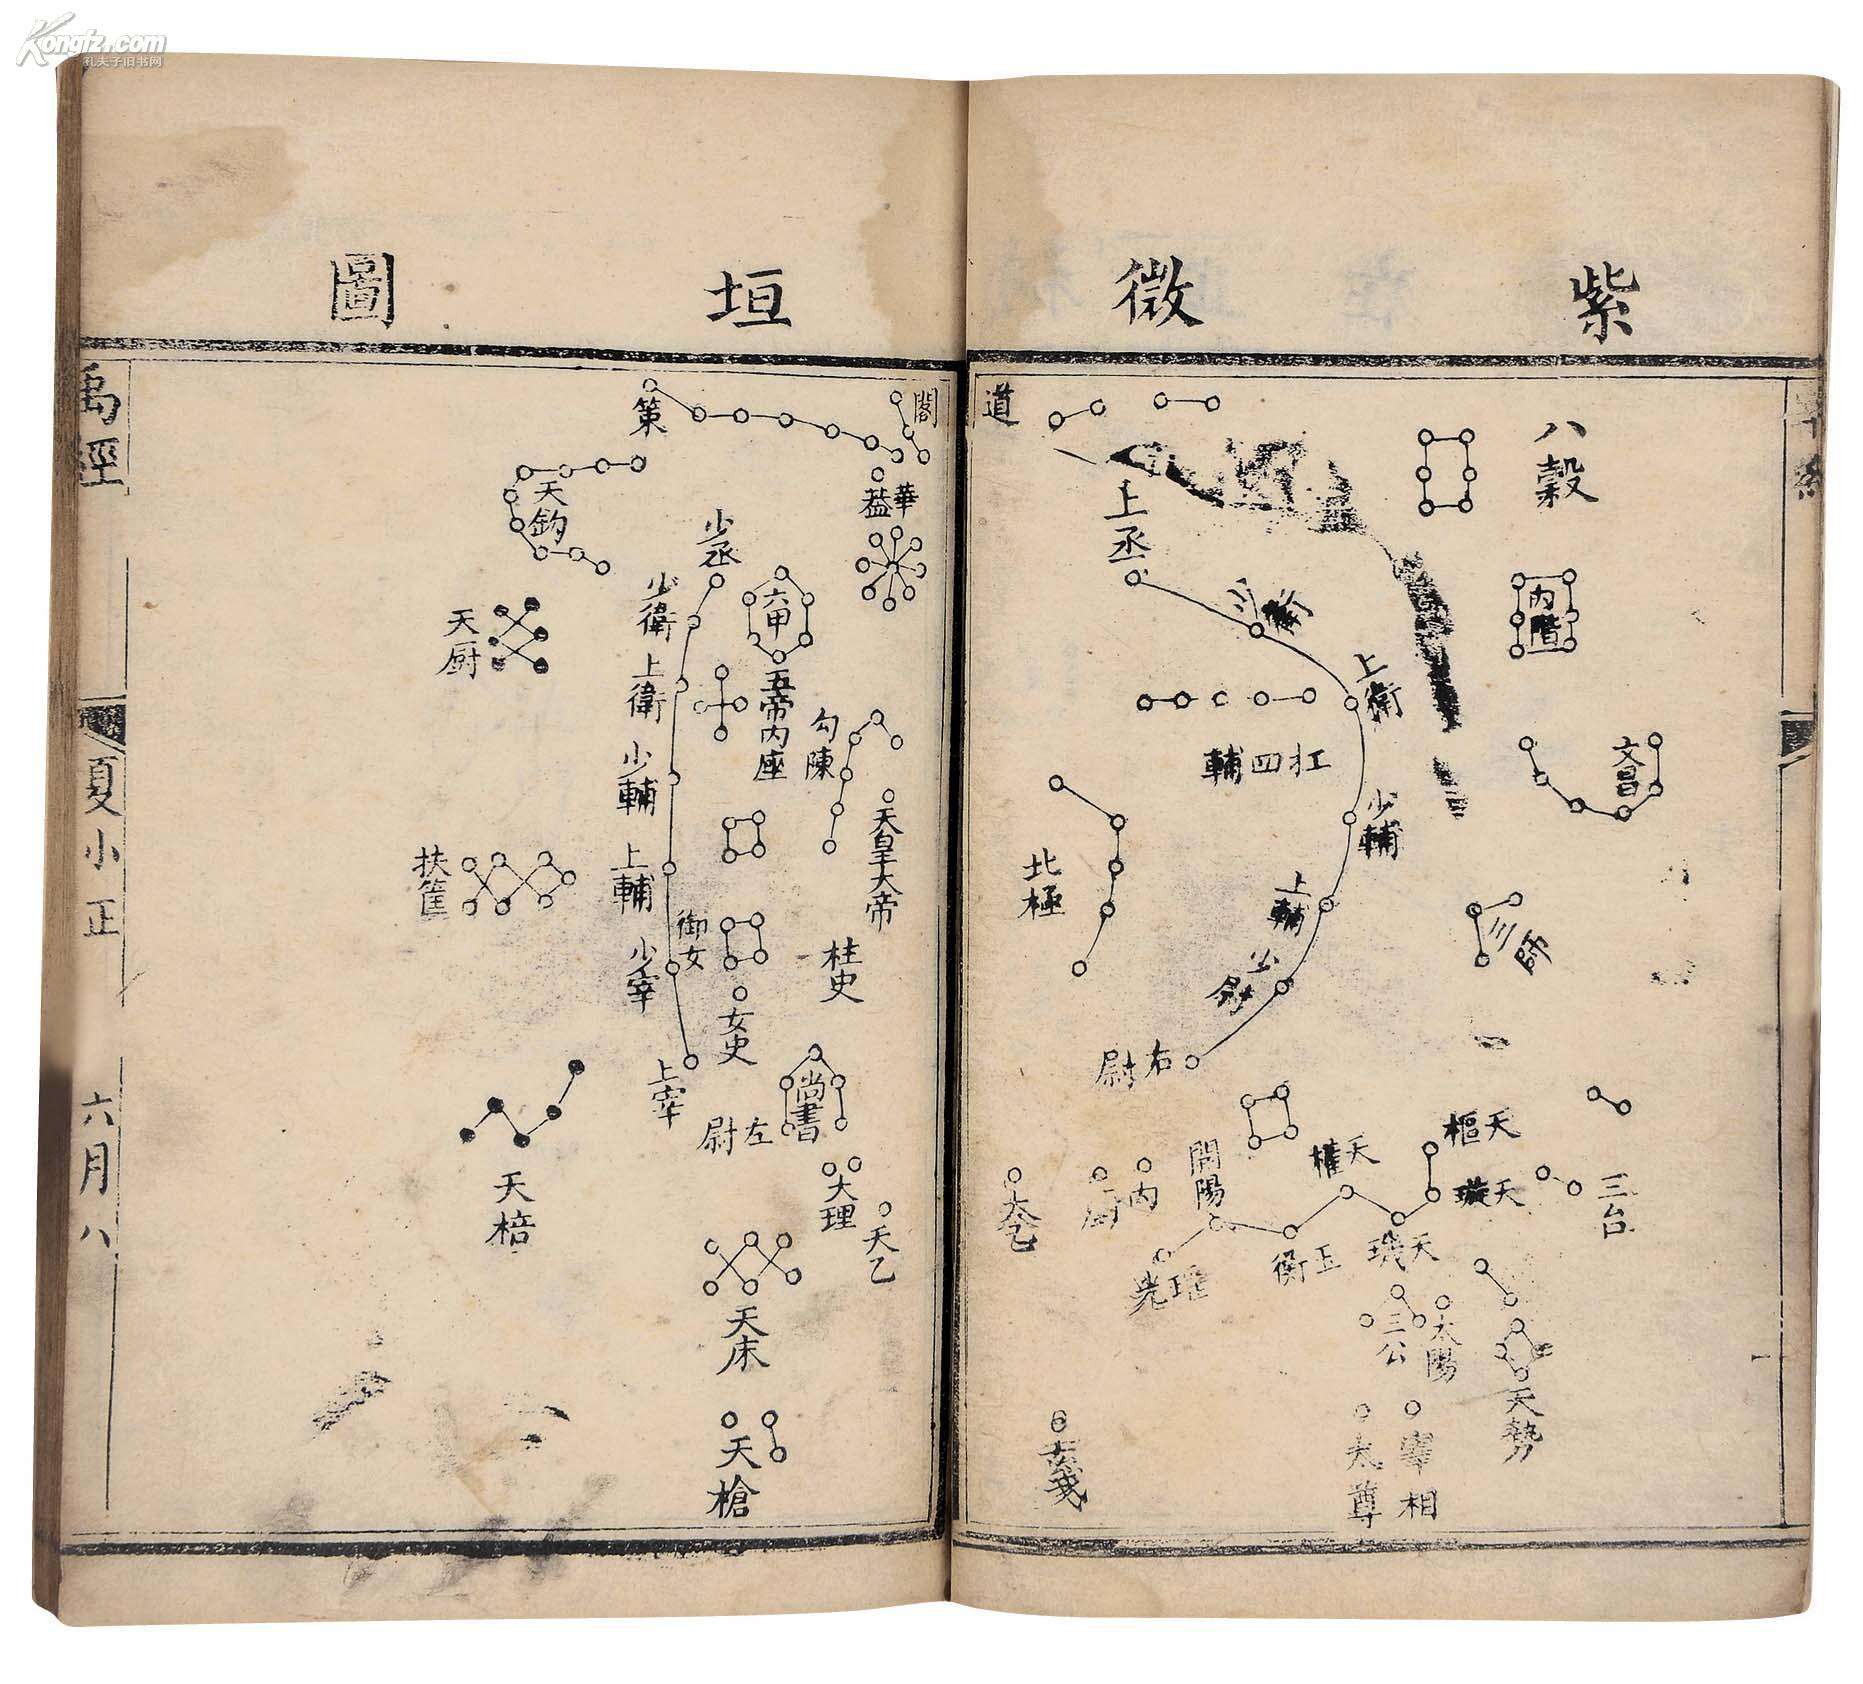 Kongfz.com
孔夫子旧书网
紫微垣圖
八穀
內階
文昌
三師
三台
天樞
天璇
天璣
天權
玉衡
開陽
瑤光
太陽
三公
天勢
宰相
太尊
道
上丞
少衛
上衛
少輔
上輔
少尉
右尉
扛四輔
北極
內厨
太乙
玄戈
閣
華蓋
六甲
五帝內座
勾陳
天皇大帝
柱史
御女
女史
尚書
大理
天乙
左尉
天床
天槍
策
天鈎
少丞
少衛
上衛
少輔
上輔
少宰
上宰
天厨
扶筐
天棓
禹經
夏小正
六月
八